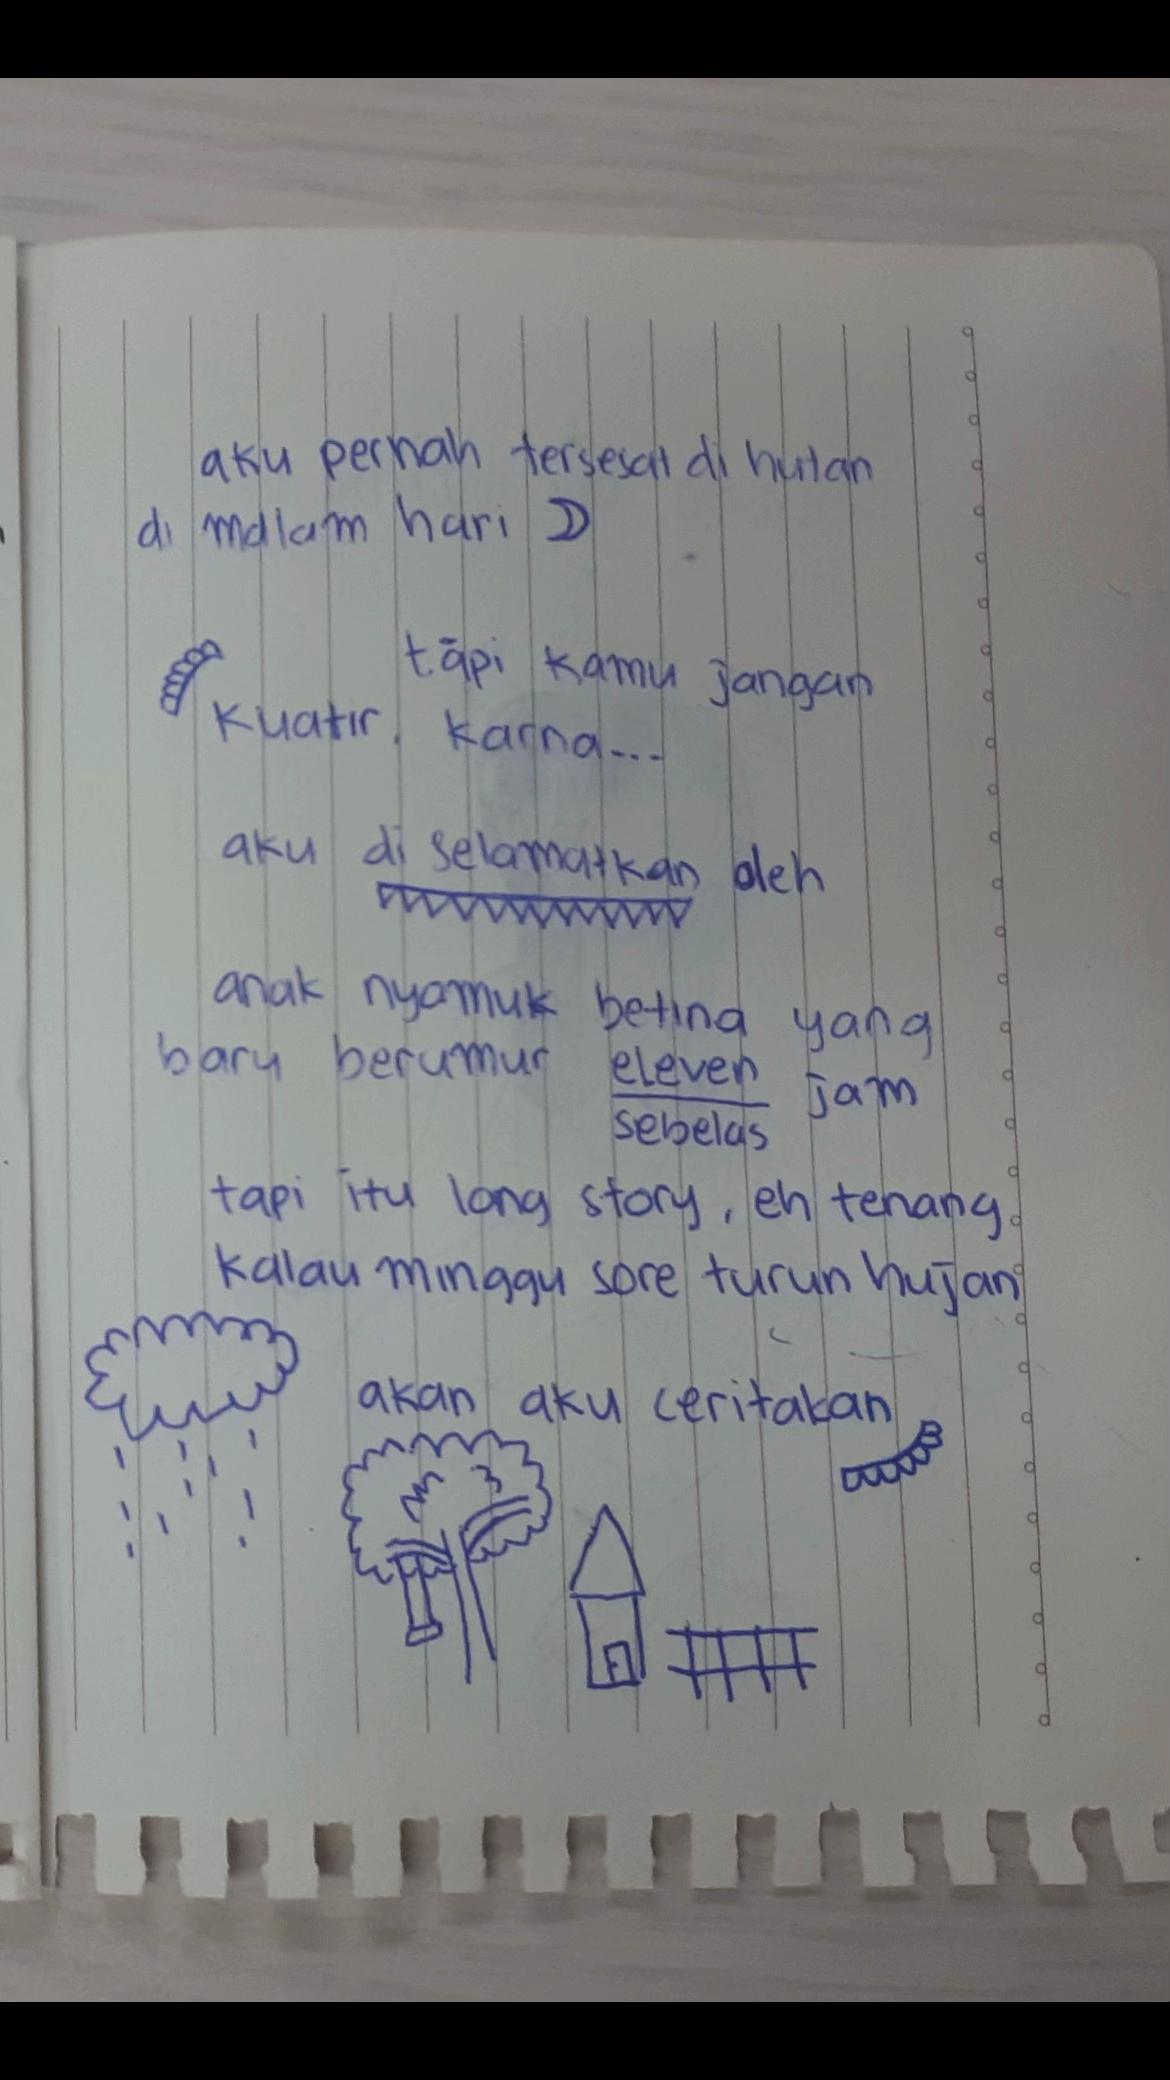 aku pernah tersesat di hutan
di malam hari
tapi kamu jangan
kuatir, karna...
aku di selamatkan oleh
anak nyamuk betina yang
baru berumur eleven jam
sebelas
tapi itu long story, eh tenang
kalau minggu sore turun hujan
akan aku ceritakan